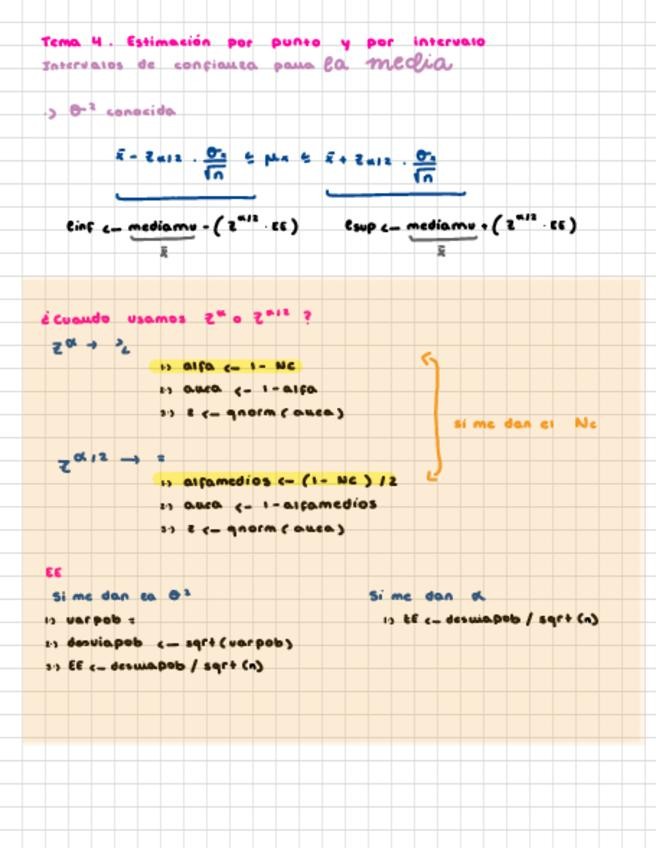 Tema 4. Estimación por punto y por intervalo
Intervalos de confianza para la media
·) θ² conocida
x̄ - zα/2 · σx/√n ≤ μx ≤ x̄ + zα/2 · σx/√n
einf <- mediamu - (z^α/2 · EE) esup <- mediamu + (z^α/2 · EE)
x̄ x̄
¿Cuando usamos z^α o z^α/2 ?
z^α →
1·) alfa <- 1 - NC
2·) area <- 1-alfa
3·) z <- qnorm (area)
si me dan el NC
z^α/2 → =
1·) alfamedios <- (1 - NC ) /2
2·) area <- 1-alfamedios
3·) z <- qnorm (area)
EE
Si me dan la θ² Si me dan
1·) varpob = 1·) EE <- desviapob / sqrt (n)
2·) desviapob <- sqrt (varpob)
3·) EE <- desviapob / sqrt (n)